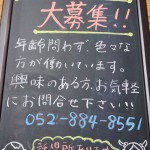 大募集!!
年齢問わず、色々な
方が働いています。
興味のある方、お気軽
にお問合せ下さい!!
052-884-8551